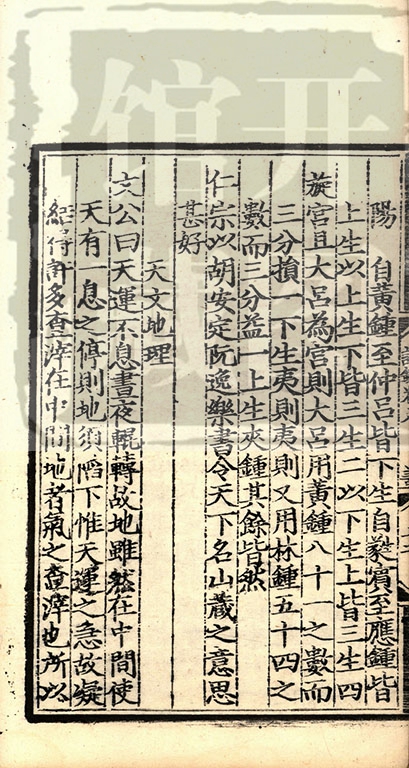 陽　自黃鍾至仲呂皆下生自蕤賓至應鍾皆
上生以上生下皆三生二以下生上皆三生四
旋宮且大呂為宮則大呂用黃鍾八十一之數而
三分損一下生夷則夷則又用林鍾五十四之
數而三分益一上生夾鍾其餘皆然
仁宗以胡安定阮逸樂書令天下名山藏之意思
甚好
天文地理
文公曰天運不息晝夜輥轉故地雖然在中間使
天有一息之停則地須陷下惟天運之急故凝
結得許多查滓在中間地者氣之查滓也所以